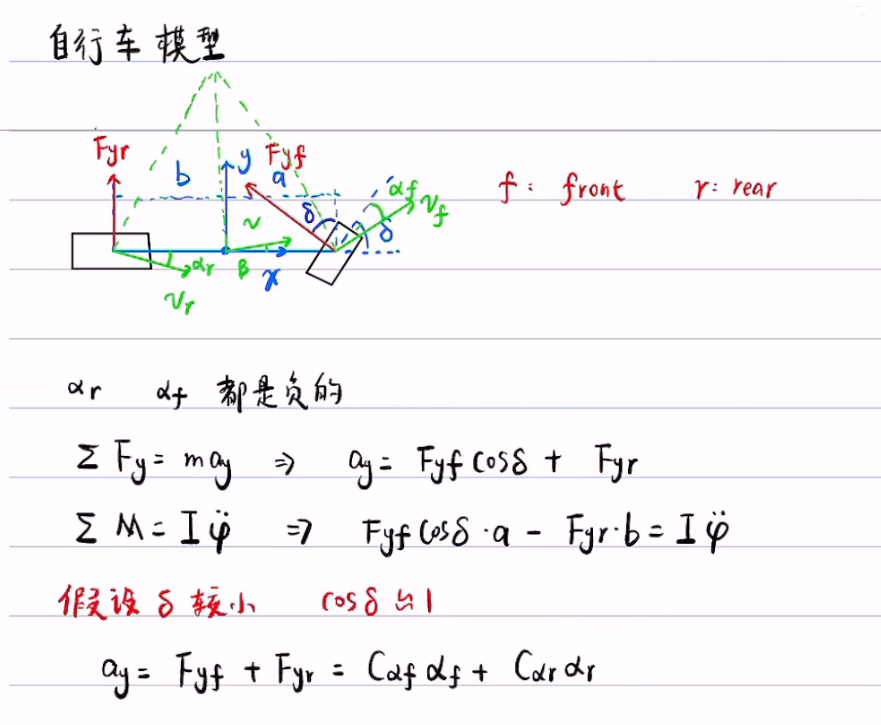 自行车模型
Fyr b y Fyf a αf vf
δ v δ
αr β x
vr
f: front r: rear
αr αf 都是负的
Σ Fy = m ay ⇒ ay = Fyf cosδ + Fyr
Σ M = I φ̈ ⇒ Fyf cosδ · a - Fyr · b = I φ̈
假设 δ 较小 cosδ ≈ 1
ay = Fyf + Fyr = Cαf αf + Cαr αr